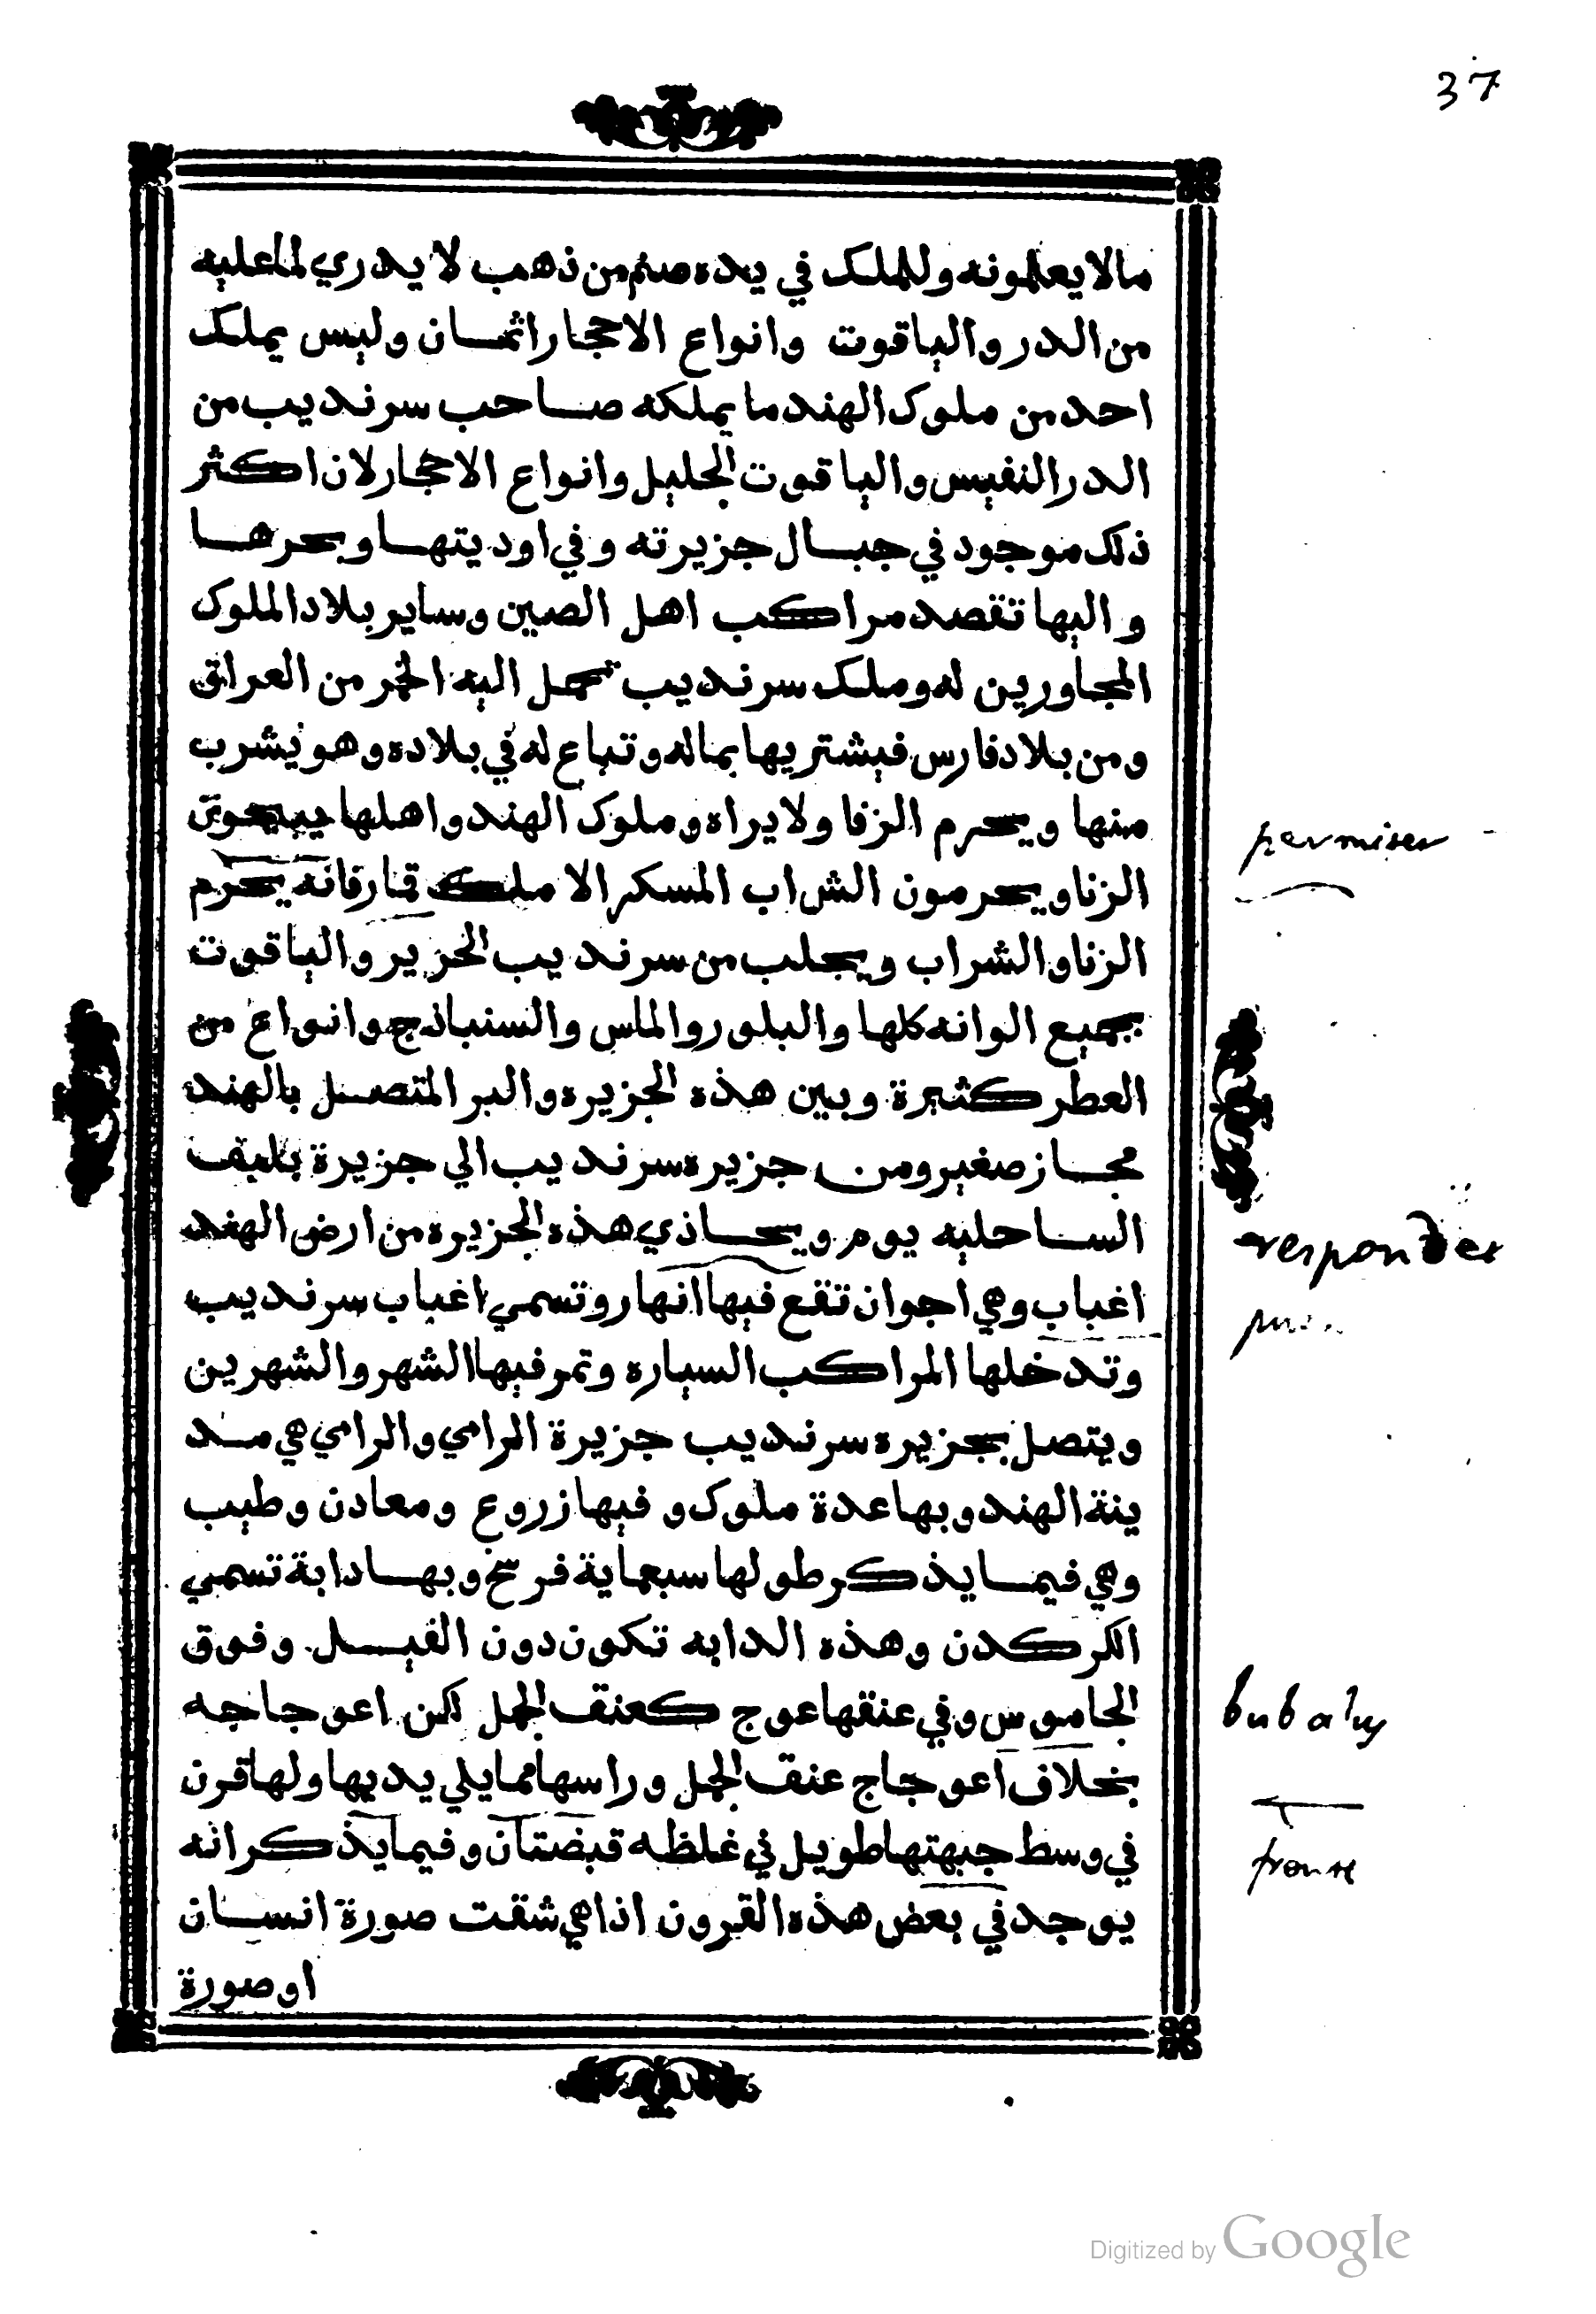 37
مالا يعلمونه وللملك في يده صنم من ذهب لا يدري لما عليه
من الدر والياقوت وانواع الاحجار اثمان وليس يملك
احد من ملوك الهند ما يملكه صاحب سرنديب من
الدر النفيس والياقوت الجليل وانواع الاحجار لان اكثر
ذلك موجود في جبال جزيرته وفي اوديتها وبحرها
واليها تقصد مراكب اهل الصين وساير بلاد الملوك
المجاورين له وملك سرنديب تحمل اليه الخمر من العراق
ومن بلاد فارس فيشتريها بماله وتباع له في بلاده وهو يشرب
منها ويحرم الزفا ولا يراه وملوك الهند واهلها يبيحون
الزنا ويحرمون الشراب المسكر الا ملك قمار فانه يحرم
الزنا والشراب ويجلب من سرنديب الحرير والياقوت
بجميع الوانه كلها والبلور والماس والسنباذج وانواع من
العطر كثيرة وبين هذه الجزيره والبر المتصل بالهند
مجاز صغير ومن جزيره سرنديب الي جزيرة بليف
الساحليه يوم ويحاذي هذه الجزيره من ارض الهند
اغباب وهي اجوان تقع فيها انهار وتسمي اغباب سرنديب
وتدخلها المراكب السياره وتمر فيها الشهر والشهرين
ويتصل بجزيره سرنديب جزيرة الرامي والرامي هي مد
ينة الهند وبها عدة ملوك و فيها زروع ومعادن وطيب
وهي فيما يذكر طولها سبعماية فرسخ وبها دابة تسمي
الكركدن وهذه الدابه تكون دون الفيل وفوق
الجاموس وفي عنقها عوج كعنق الجمل لكن اعوجاجه
بخلاف اعوجاج عنق الجمل وراسها مما يلي يديها ولها قرن
في وسط جبهتها طويل في غلظه قبضتان وفيما يذكر انه
يوجد في بعض هذه القرون اذا هي شقت صورة انسان
او صورة
permiser
respondet
bubalus
fronte
Digitized by Google